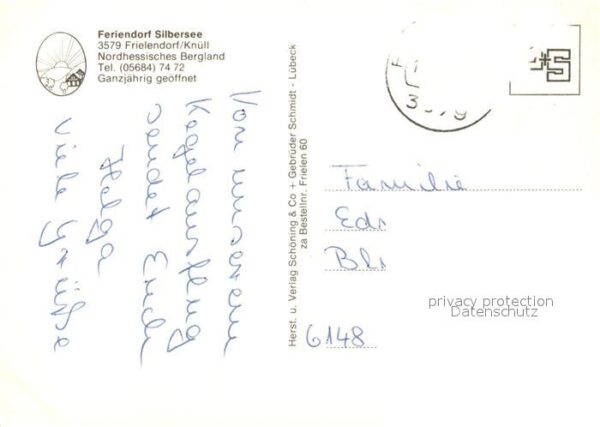 Feriendorf Silbersee
3579 Frielendorf/Knüll
Nordhessisches Bergland
Tel. (05684) 74 72
Ganzjährig geöffnet
Von unserem
Kegelausflug
sendet Euch
Helga
viele Grüße
Herst. u. Verlag Schöning & Co + Gebrüder Schmidt - Lübeck
za Bestellnr. Frielen 60
3579
+S
Familie
Edi
6148
privacy protection
Datenschutz